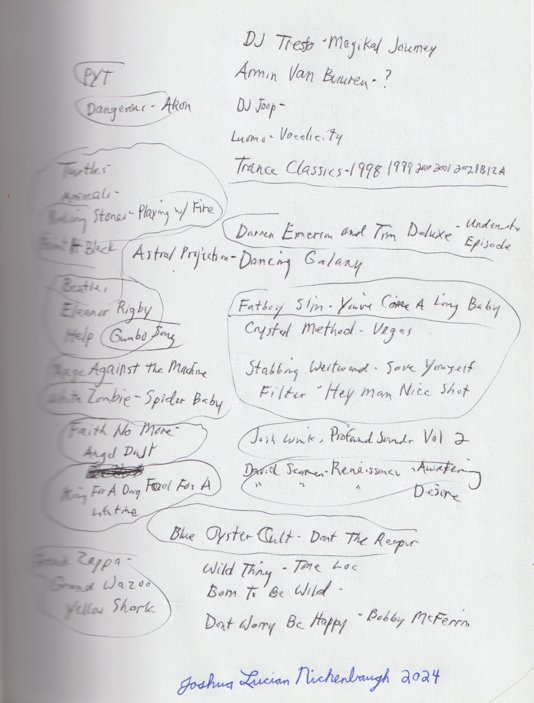 DJ Tiesto - Magikal Journey
PYT
Armin Van Buuren - ?
Dangerous - Akon
DJ Joop -
Luomo - Vocalcity
Turtles -
Trance Classics - 1998 1999 2000 2001 2A 2B 12A
Animals -
Rolling Stones - Playing w/ Fire
Darren Emerson and Tim Deluxe - Underwater Episode
Paint It Black
Astral Projection - Dancing Galaxy
Beatles
Eleanor Rigby
Help Gumbo Song
Fatboy Slim - You've Come A Long Baby
Crystal Method - Vegas
Rage Against the Machine
Stabbing Westward - Save Yourself
White Zombie - Spider Baby
Filter - Hey Man Nice Shot
Faith No More -
Angel Dust
Josh Wink - Profound Sounds Vol 2
King For A Day Fool For A
Lifetime
David Seaman - Renaissance - Awakening
" " " Desire
Blue Oyster Cult - Dont The Reaper
Frank Zappa -
Grand Wazoo
Yellow Shark
Wild Thing - Tone Loc
Born To Be Wild -
Dont Worry Be Happy - Bobby McFerrin
Joshua Lucian Nichenbaugh 2024